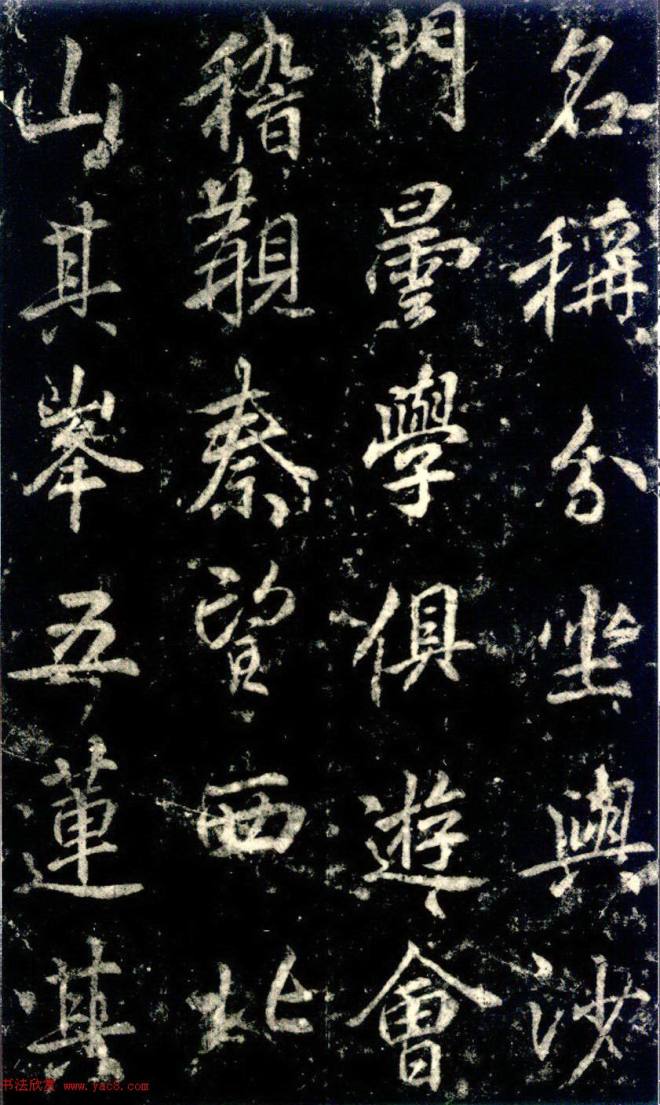 名稱分坐與沙
門曇學俱遊會
稽覯秦望西北
山其峯五蓮其
书法欣赏 www.yac8.com